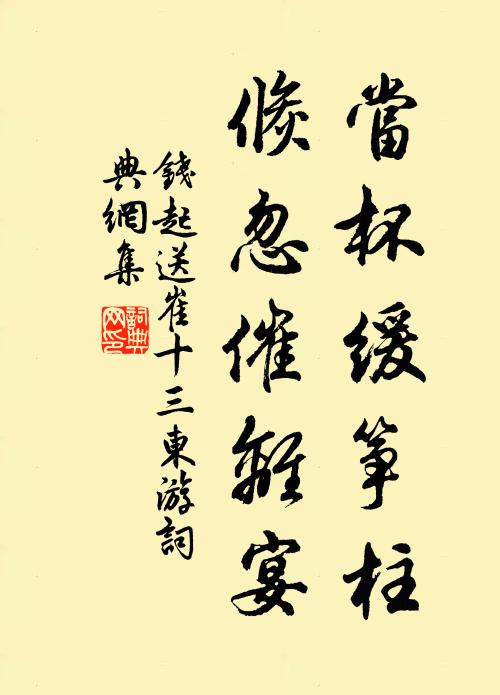 當杯緩箏柱
倏忽催離宴
錢起送崔十三東游詞
典網集
詞典
网印